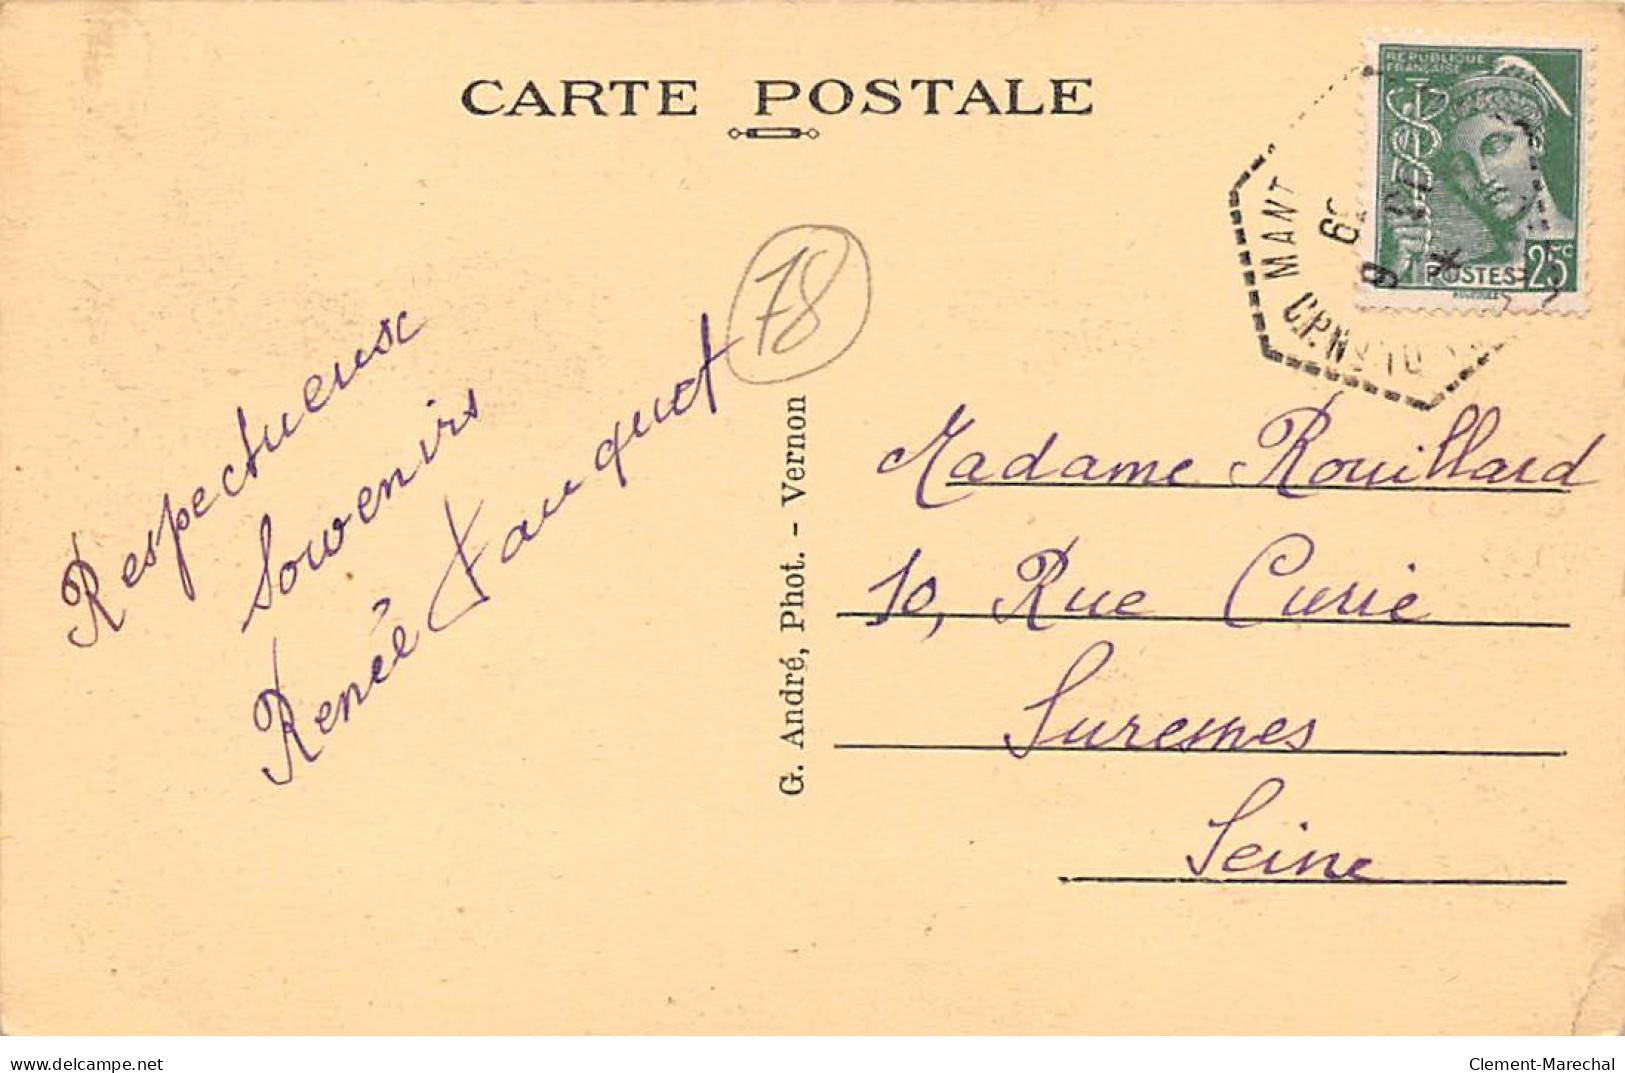 CARTE POSTALE
RÉPUBLIQUE
FRANÇAISE
POSTES 25c
MANT
C.P.N
39
78
Respectueux
Souvenirs
Renée
G. André, Phot. - Vernon
Madame Rouillard
10, Rue Curie
Suresnes
Seine
delcampe.net
Clement-Marechal